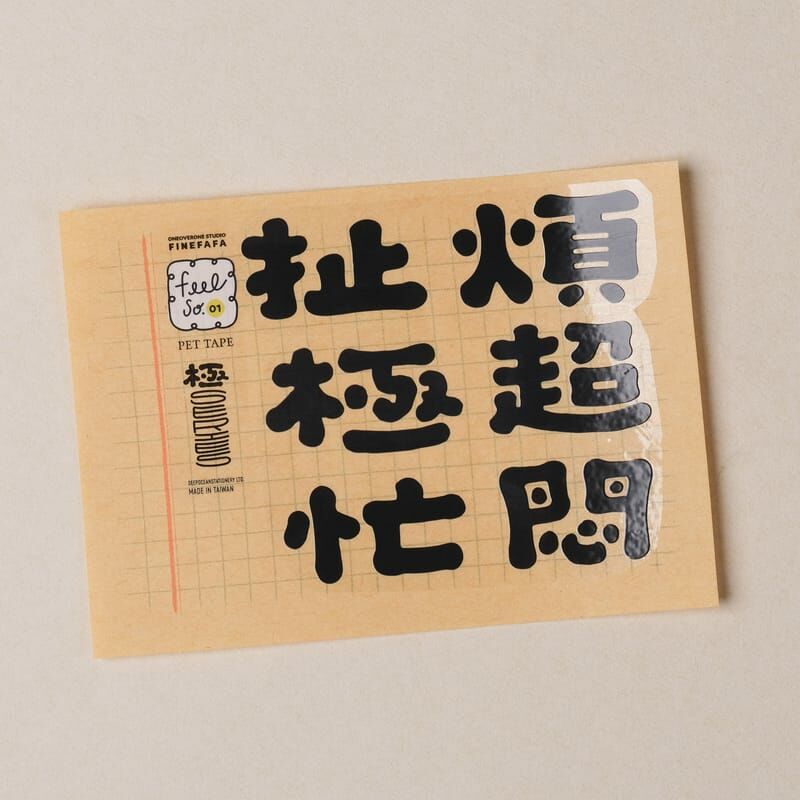 ONEOVERONE STUDIO
FINEFAFA
feel
so. 01
PET TAPE
極
DEEPOCEANSTATIONERY LTD.
MADE IN TAIWAN
扯 煩
極 超
忙 悶